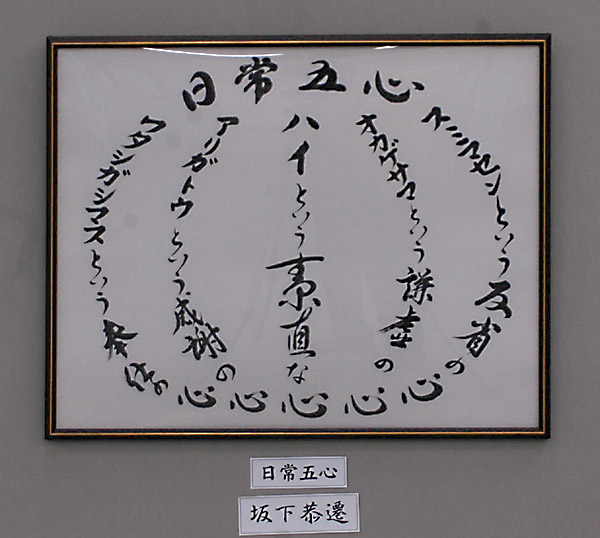 日常五心
スミマセンという反省の心
オカゲサマという謙虚の心
ハイという素直な心
アリガトウという感謝の心
ワタシガシマスという奉仕の心
日常五心
坂下恭遷